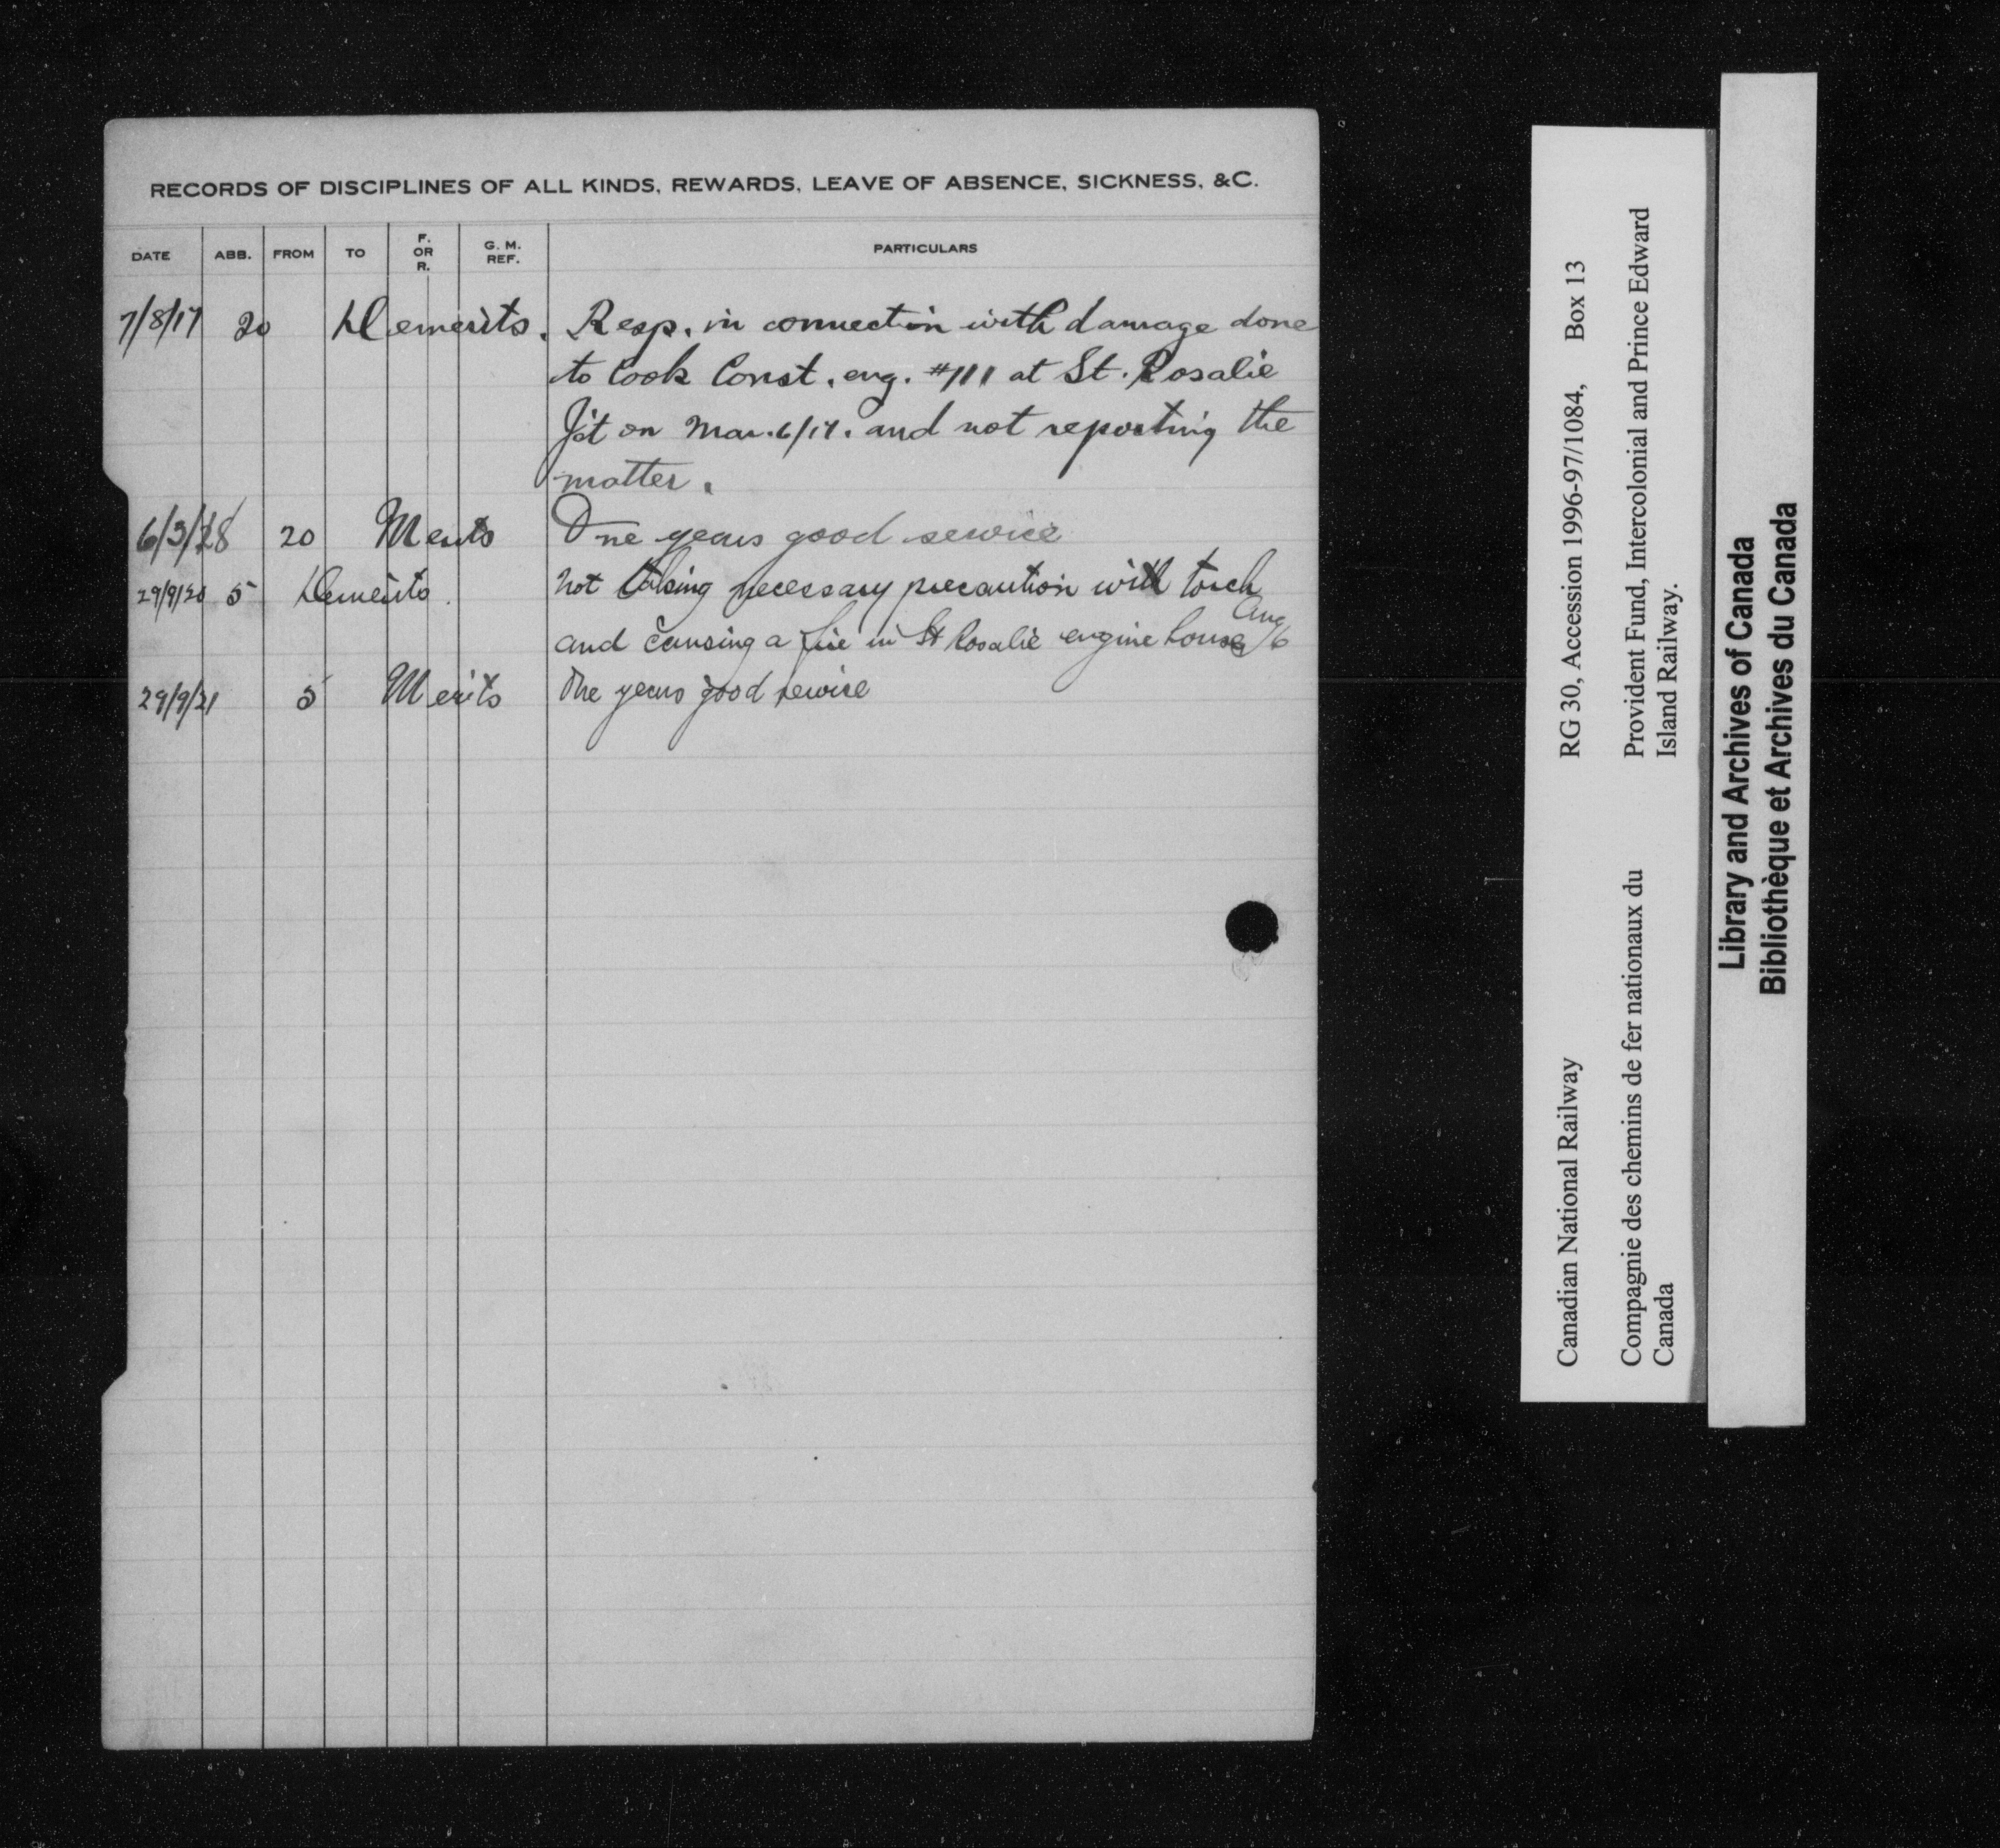 RECORDS OF DISCIPLINES OF ALL KINDS, REWARDS, LEAVE OF ABSENCE, SICKNESS, &C.
DATE ABB. FROM TO F. OR R. G. M. REF. PARTICULARS
7/8/17 20 Demerits. Resp. in connection with damage done
to Cook Const. eng. #111 at St. Rosalie
Jct on Mar. 6/17. and not reporting the
matter.
6/3/18 20 Merits One years good service
29/9/20 5 Demerits. Not taking necessary precaution with torch
and causing a fire in St Rosalie engine house Aug 6
29/9/21 5 Merits One years good service
Canadian National Railway RG 30, Accession 1996-97/1084, Box 13
Compagnie des chemins de fer nationaux du Canada
Provident Fund, Intercolonial and Prince Edward Island Railway.
Library and Archives of Canada
Bibliothèque et Archives du Canada